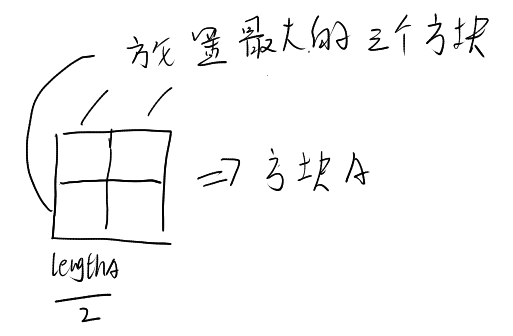 放置最大的三个方块
=> 方块A
lengthA
2